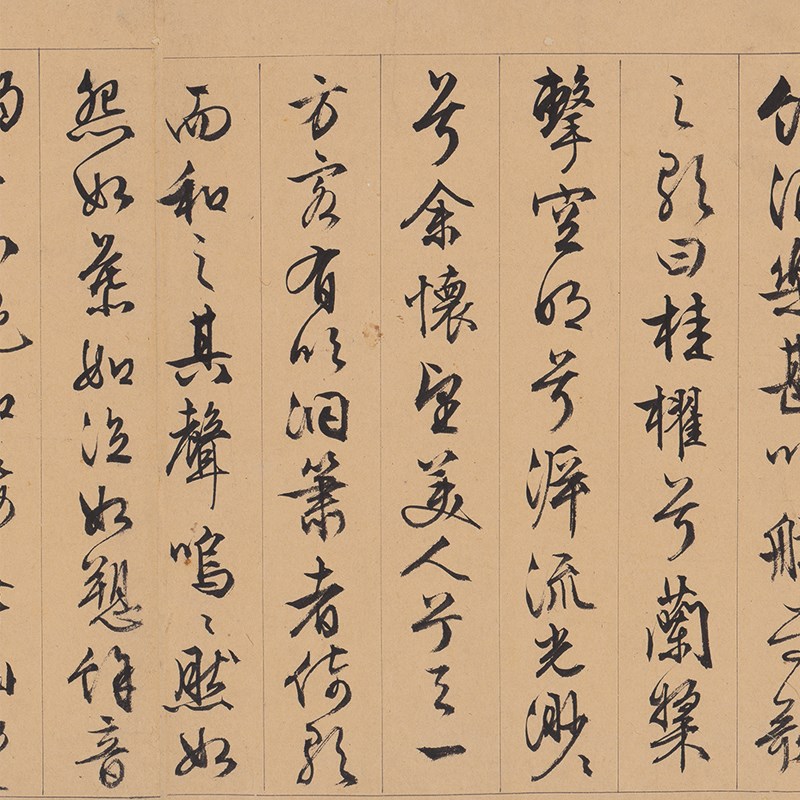 飲酒樂甚扣舷而歌
之歌曰桂櫂兮蘭槳
擊空明兮泝流光渺〻
兮余懷望美人兮天一
方客有吹洞簫者倚歌
而和之其聲嗚〻然如
怨如慕如泣如愬餘音